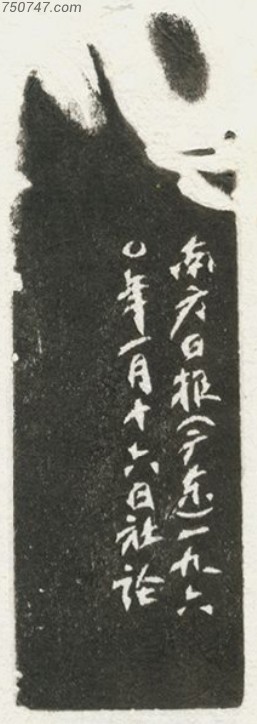 750747.com
南方日报(广东)一九六
〇年一月十六日社论